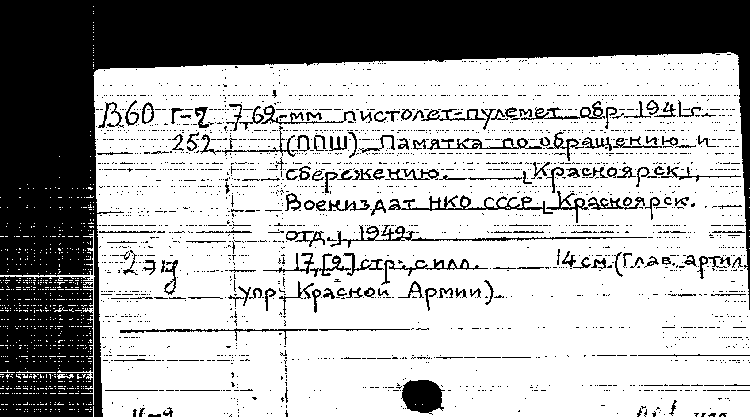 В60 г-2 7,62-мм пистолет-пулемет обр. 1941 г.
252 (ППШ). Памятка по обращению и
сбережению. [Красноярск],
Воениздат НКО СССР [Красноярск.
отд.], 1942г.
2 экз 17,[2] стр., с илл. 14 см. (Глав. артил.
упр. Красной Армии).